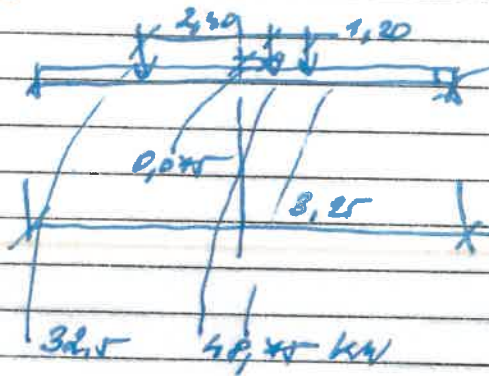 2,40 1,20
0,075
3,25
32,5 48,75 KN